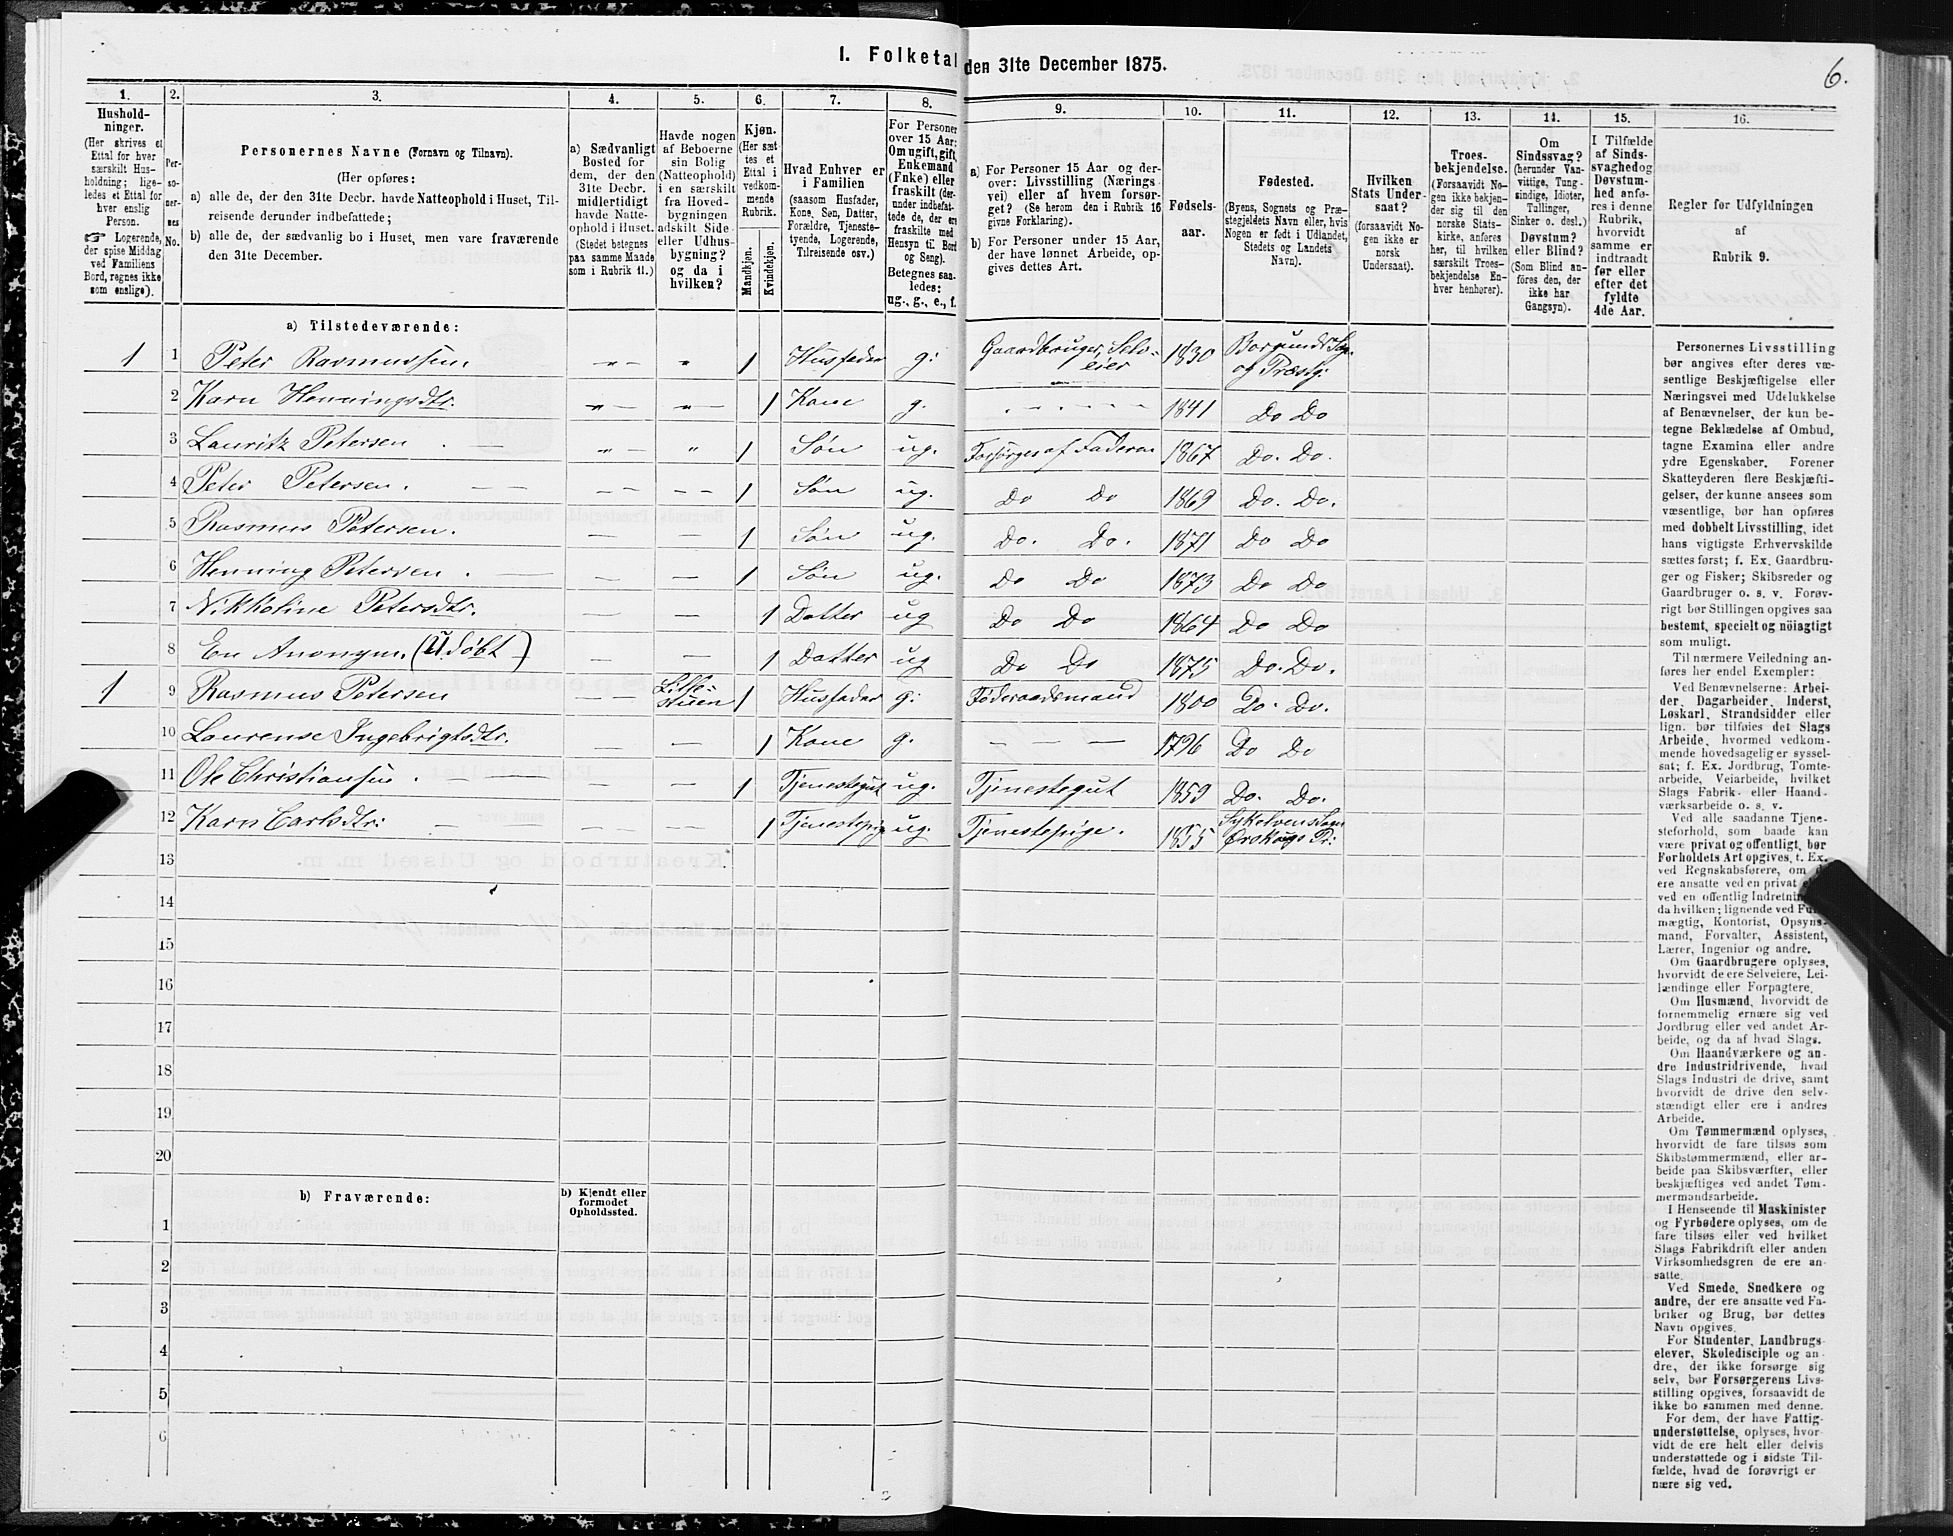 I. Folketal den 31te December 1875.
6.
1. 2. 3. 4. 5. 6. 7. 8. 9. 10. 11. 12. 13. 14. 15. 16.
Hushold-
ninger.
(Her skrives et
Ettal for hver
særskilt Hus-
holdning; lige-
ledes et Ettal for
hver enslig
Person.
☞ Logerende,
der spise Middag
ved Familiens
Bord, regnes ikke
som enslige).
Per-
so-
ner-
nes
No.
Personernes Navne (Fornavn og Tilnavn).
(Her opføres:
a) alle de, der den 31te Decbr. havde Natteophold i Huset, Til-
reisende derunder indbefattede;
b) alle de, der sædvanlig bo i Huset, men vare fraværende
den 31te December.
a) Sædvanligt
Bosted for
dem, der den
31te Decbr.
midlertidigt
havde Natte-
ophold i Huset.
(Stedet betegnes
paa samme Maade
som i Rubrik 11.)
Havde nogen
af Beboerne
sin Bolig
(Natteophold)
i en særskilt
fra Hoved-
bygningen
adskilt Side-
eller Udhus-
bygning?
og da i
hvilken?
Kjøn.
(Her sæt
tes et
Ettal i
vedkom-
mende
Rubrik.
Mandkjøn.
Kvindekjøn.
Hvad Enhver er
i Familien
(saasom Husfader,
Kone, Søn, Datter,
Forældre, Tjeneste-
tyende, Logerende,
Tilreisende osv.)
For Personer
over 15 Aar:
Om ugift, gift,
Enkemand
(Enke) eller
fraskilt (der-
under indbefat-
tede de, der ere
fraskilte med
Hensyn til Bord
og Seng).
Betegnes saa-
ledes:
ug., g., e., f.
a) For Personer 15 Aar og der-
over: Livsstilling (Nærings
vei) eller af hvem forsør-
get? (Se herom den i Rubrik 16
givne Forklaring).
b) For Personer under 15 Aar,
der have lønnet Arbeide, op-
gives dettes Art.
Fødsels-
aar.
Fødested.
(Byens, Sognets og Præ-
stegjeldets Navn eller, hvis
Nogen er født i Udlandet,
Stedets og Landets
Navn).
Hvilken
Stats Under-
saat?
(forsaavidt No-
gen ikke er
norsk
Undersaat).
Troes-
bekjendelse.
(Forsaavidt No-
gen ikke bekjen-
der sig til den
norske Stats-
kirke, anføres
her, til hvilken
særskilt Troes-
bekjendelse En-
hver henhører).
Om
Sindssvag?
(herunder Van-
vittige, Tung-
sindige, Idioter,
Tullinger,
Sinker o. desl.)
Døvstum?
eller Blind?
(Som Blind an-
føres den, der
ikke har
Gangsyn).
I Tilfælde
af Sinds-
svaghed og
Døvstum-
hed anfø-
res i denne
Rubrik,
hvorvidt
samme er
indtraadt
før eller
efter det
fyldte
4de Aar.
Regler for Udfyldningen
af
Rubrik 9.
a) Tilstedeværende:
1 1 Peter Rasmussen. 1 Husfader g: Gaardbruger, Selv-eier 1830 Borgund Sog. og Præstg:
2 Karn Henningsdtr. 1 Kone g. 1841 Do Do
3 Lauritz Petersen 1 Søn ug. Forsørges af Faderen 1867 Do. Do.
4 Peter Petersen. 1 Søn ug. Do Do 1869 Do. Do.
5 Rasmus Petersen. 1 Søn ug. Do. Do. 1871 Do Do
6 Henning Petersen. 1 Søn ug. Do Do 1873 Do Do
7 Nikkoline Petersdtr. 1 Datter ug Do Do 1864 Do Do
8 En Anonym. (Udøbt) 1 Datter ug Do Do 1875 Do. Do.
1 9 Rasmus Petersen Lille-stuen 1 Husfader g: Føderaadsmand 1800 Do. Do.
10 Laurense Ingebrigtsdtr. 1 Kone g. 1796 Do Do
11 Ole Christiansen. 1 Tjenestegut ug. Tjenestegut 1859 Do. Do.
12 Karn Carlsdtr: 1 Tjenestepige ug. Tjenestepige. 1855 Sykelvens Sogn Ørskougs Pr:
13
14
15
16
17
18
19
20
b) Fraværende:
b) Kjendt eller
formodet
Opholdssted.
1
2
3
4
5
6
Personernes Livsstilling
bør angives efter deres væ-
sentlige Beskjæftigelse eller
Næringsvei med Udelukkelse
af Benævnelser, der kun be-
tegne Beklædelse af Ombud,
tagne Examina eller andre
ydre Egenskaber. Forener
Skatteyderen flere Beskjæfti-
gelser, der kunne ansees som
væsentlige, bør han opføres
med dobbelt Livsstilling, idet
hans vigtigste Erhvervskilde
sættes først; f. Ex. Gaardbru-
ger og Fisker; Skibsreder og
Gaardbruger o. s. v. Forøv-
rigt bør Stillingen opgives saa
bestemt, specielt og nöiagtigt
som muligt.
Til nærmere Veiledning an-
føres her endel Exempler:
Ved Benævnelserne: Arbei-
der, Dagarbeider, Inderst,
Løskarl, Strandsidder eller
lign. bør tilføies det Slags
Arbeide, hvormed vedkom-
mende hovedsagelig er syssel-
sat; f. Ex. Jordbrug, Tomte-
arbeide, Veiarbeide, hvilket
Slags Fabrik- eller Haand-
værksarbeide o. s. v.
Ved alle saadanne Tjene-
steforhold, som baade kan
være privat og offentligt, bør
Forholdets Art opgives, t. Ex.
ved Regnskabsførere, om de
ere ansatte ved en privat
ved en offentlig Indretnin
da hvilken; lignende ved Ful
mægtig, Kontorist, Opsyns-
mand, Forvalter, Assistent,
Lærer, Ingeniør og andre.
Om Gaardbrugere oplyses,
hvorvidt de ere Selveiere, Lei-
lændinge eller Forpagtere.
Om Husmænd, hvorvidt de
fornemmelig ernære sig ved
Jordbrug eller ved andet Ar-
beide, og da af hvad Slags.
Om Haandværkere og an-
dre Industridrivende, hvad
Slags Industri de drive, samt
hvorvidt de drive den selv-
stændigt eller ere i andres
Arbeide.
Om Tømmermænd oplyses,
hvorvidt de fare tilsøs som
Skibstømmermænd, eller ar-
beide paa Skibsværfter, eller
beskjæftiges ved andet Tøm-
mermandsarbeide.
I Henseende til Maskinister
og Fyrbødere oplyses, om de
fare tilsøs eller ved hvilket
Slags Fabrikdrift eller anden
Virksomhedsgren de ere an-
satte.
Ved Smede, Snedkere og
andre, der ere ansatte ved Fa-
briker og Brug, bør dettes
Navn opgives.
For Studenter, Landbrugs-
elever, Skoledisciple og an-
dre, der ikke forsørge sig
selv, bør Forsørgerens Livs-
stilling opgives, forsaavidt de
ikke bo sammen med denne.
For dem, der have Fattig-
understøttelse, oplyses, hvor-
vidt de ere helt eller delvis
understøttede og i sidste Til-
fælde, hvad de forøvrigt er
nære sig ved.